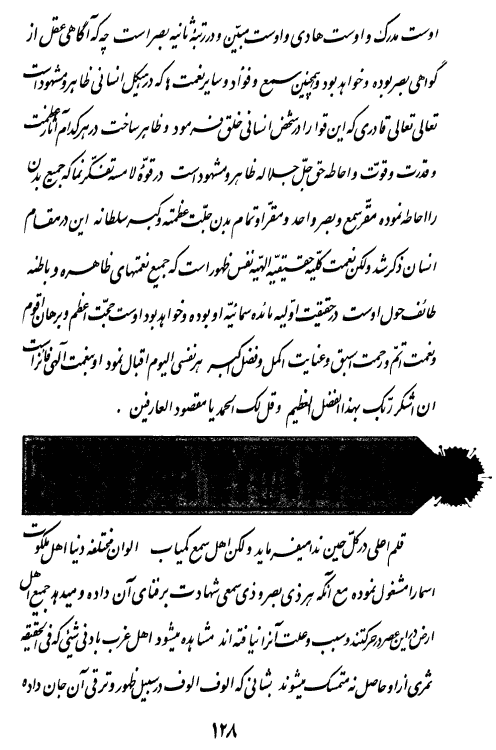 اوست مدرک و اوست هادی و اوست مبین و در رتبهٔ ثانیه بصر است چه که آگاهی عقل از
گواهی بصر بوده و خواهد بود و همچنین سمع و فؤاد و سایر نعمت‌ها که در هیکل انسانی ظاهر و مشهود است
تعالی تعالی قادری که این قوا را در شخص انسانی خلق فرمود و ظاهر ساخت در هر کدام آثار عظمت
و قدرت و قوّت و احاطه حق جلّ جلاله ظاهر و مشهود است در قوّهٔ لامسه تفکّر نما که جمیع بدن
را احاطه نموده مقرّ سمع و بصر واحد و مقرّ او تمام بدن جلّت عظمته و کبر سلطانه این در مقام
انسان ذکر شد ولکن نعمت کلّیه حقیقیّه الهیّه نفس ظهور است که جمیع نعمتهای ظاهره و باطنه
طائف حول اوست در حقیقت اوّلیه مائده سمائیّه او بوده و خواهد بود اوست حجّت اعظم و برهان اقوم
و نعمت اتمّ و رحمت اسبق و عنایت اکمل و فضل اکبر هر نفسی الیوم اقبال نمود او بنعمت الهی فائز است
ان اشکر ربّک بهذا الفضل العظیم و قل لک الحمد یا مقصود العارفین .
قلم اعلی در کلّ حین ندا میفرماید ولکن اهل سمع کمیاب الوان مختلفه دنیا اهل ملکوت
اسما را مشغول نموده مع آنکه هر ذی بصر و ذی سمعی شهادت بر فنای آن داده و میدهد جمیع اهل
ارض در این عصر در حرکتند و سبب و علت آنرا نیافته‌اند مشاهده میشود اهل غرب بادنی شیئی که فی الحقیقه
ثمری از او حاصل نه متمسک میشوند بشانی که الوف الوف در سبیل ظهور و ترقی آن جان داده
۱۲۸